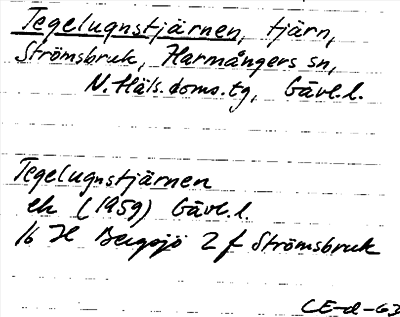 Tegelugnstjärnen, tjärn,
Strömsbruk, Harmångers sn,
N. Häls. doms. tg, Gävl. l.
Tegelugnstjärnen
ek (1959) Gävl. l.
16 H Bergsjö 2 f Strömsbruk
CE-d-63